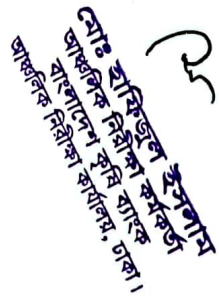 মোঃ হাফিজুল ইসলাম
আঞ্চলিক নিরীক্ষা কর্মকর্তা
বাংলাদেশ কৃষি ব্যাংক
আঞ্চলিক নিরীক্ষা কার্যালয়, ঢাকা।